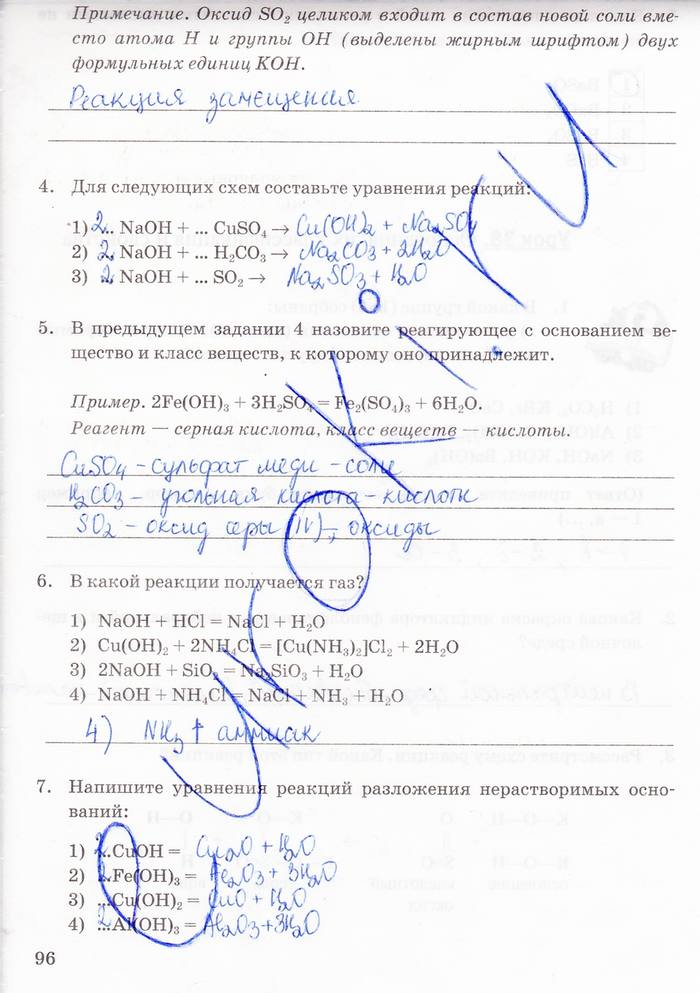 Примечание. Оксид SO₂ целиком входит в состав новой соли вме-
сто атома H и группы OH (выделены жирным шрифтом) двух
формульных единиц KOH.
Реакция замещения
4. Для следующих схем составьте уравнения реакций:
1) 2... NaOH + ... CuSO₄ → Cu(OH)₂ + Na₂SO₄
2) 2... NaOH + ... H₂CO₃ → Na₂CO₃ + 2H₂O
3) 2... NaOH + ... SO₂ → Na₂SO₃ + H₂O
5. В предыдущем задании 4 назовите реагирующее с основанием ве-
щество и класс веществ, к которому оно принадлежит.
Пример. 2Fe(OH)₃ + 3H₂SO₄ = Fe₂(SO₄)₃ + 6H₂O.
Реагент — серная кислота, класс веществ — кислоты.
CuSO₄ - сульфат меди - соли
H₂CO₃ - угольная кислота - кислоты
SO₂ - оксид серы (IV) - оксиды
6. В какой реакции получается газ?
1) NaOH + HCl = NaCl + H₂O
2) Cu(OH)₂ + 2NH₄Cl = [Cu(NH₃)₂]Cl₂ + 2H₂O
3) 2NaOH + SiO₂ = Na₂SiO₃ + H₂O
4) NaOH + NH₄Cl = NaCl + NH₃ + H₂O
4) NH₃↑ аммиак
7. Напишите уравнения реакций разложения нерастворимых осно-
ваний:
1) 2...CuOH = Cu₂O + H₂O
2) 2...Fe(OH)₃ = Fe₂O₃ + 3H₂O
3) ...Cu(OH)₂ = CuO + H₂O
4) 2...Al(OH)₃ = Al₂O₃ + 3H₂O
96
UROKI.RU